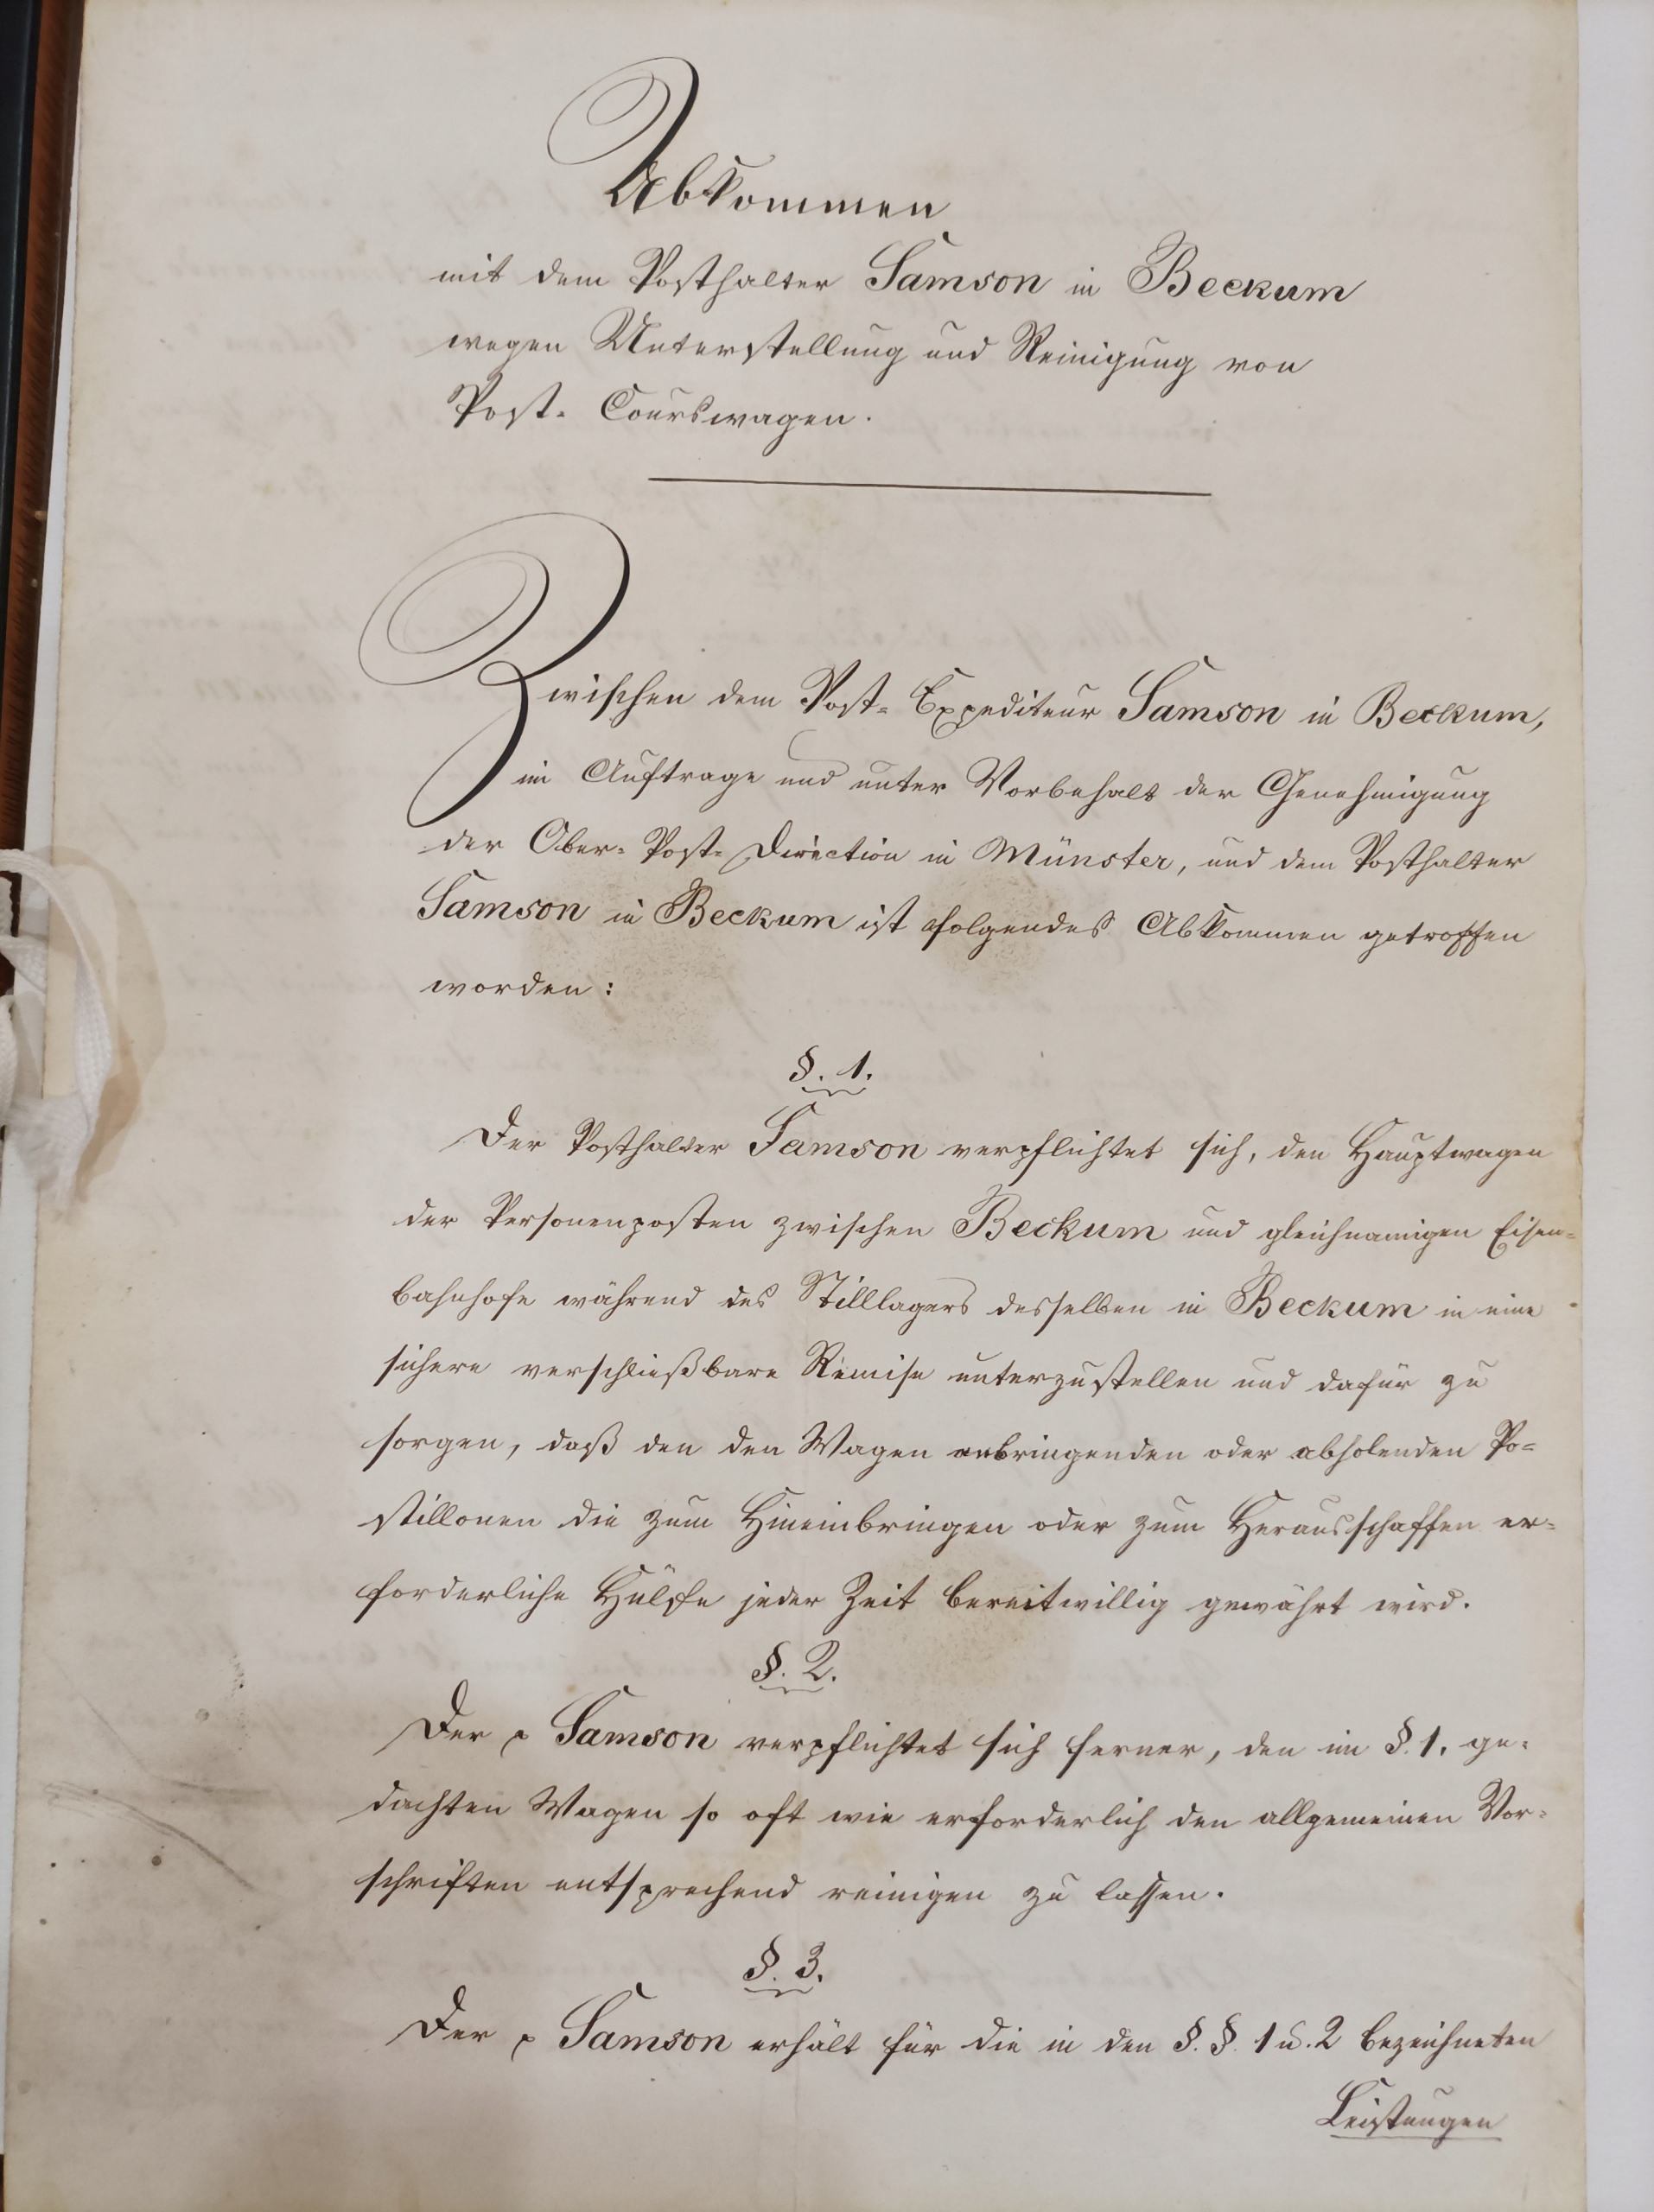 Abkommen
mit dem Posthalter Samson in Beckum
wegen Unterstellung und Reinigung von
Post- Courswagen.
Zwischen dem Post- Expediteur Samson in Beckum,
im Auftrage und unter Vorbehalt der Genehmigung
der Ober- Post- Direction in Münster, und dem Posthalter
Samson in Beckum ist folgendes Abkommen getroffen
worden:
§. 1.
Der Posthalter Samson verpflichtet sich, den Hauptwagen
der Personenposten zwischen Beckum und gleichnamigen Eisen-
bahnhofe während des Stilllagers desselben in Beckum in eine
sichere verschließbare Remise unterzustellen und dafür zu
sorgen, daß den den Wagen anbringenden oder abholenden Po-
stillonen die zum Hineinbringen oder zum Herausschaffen er-
forderliche Hülfe jeder Zeit bereitwillig gewährt wird.
§. 2.
Der p Samson verpflichtet sich ferner, den im §. 1. ge-
dachten Wagen so oft wie erforderlich den allgemeinen Vor-
schriften entsprechend reinigen zu lassen.
§. 3.
Der p Samson erhält für die in den §. §. 1 u. 2 bezeichneten
Leistungen